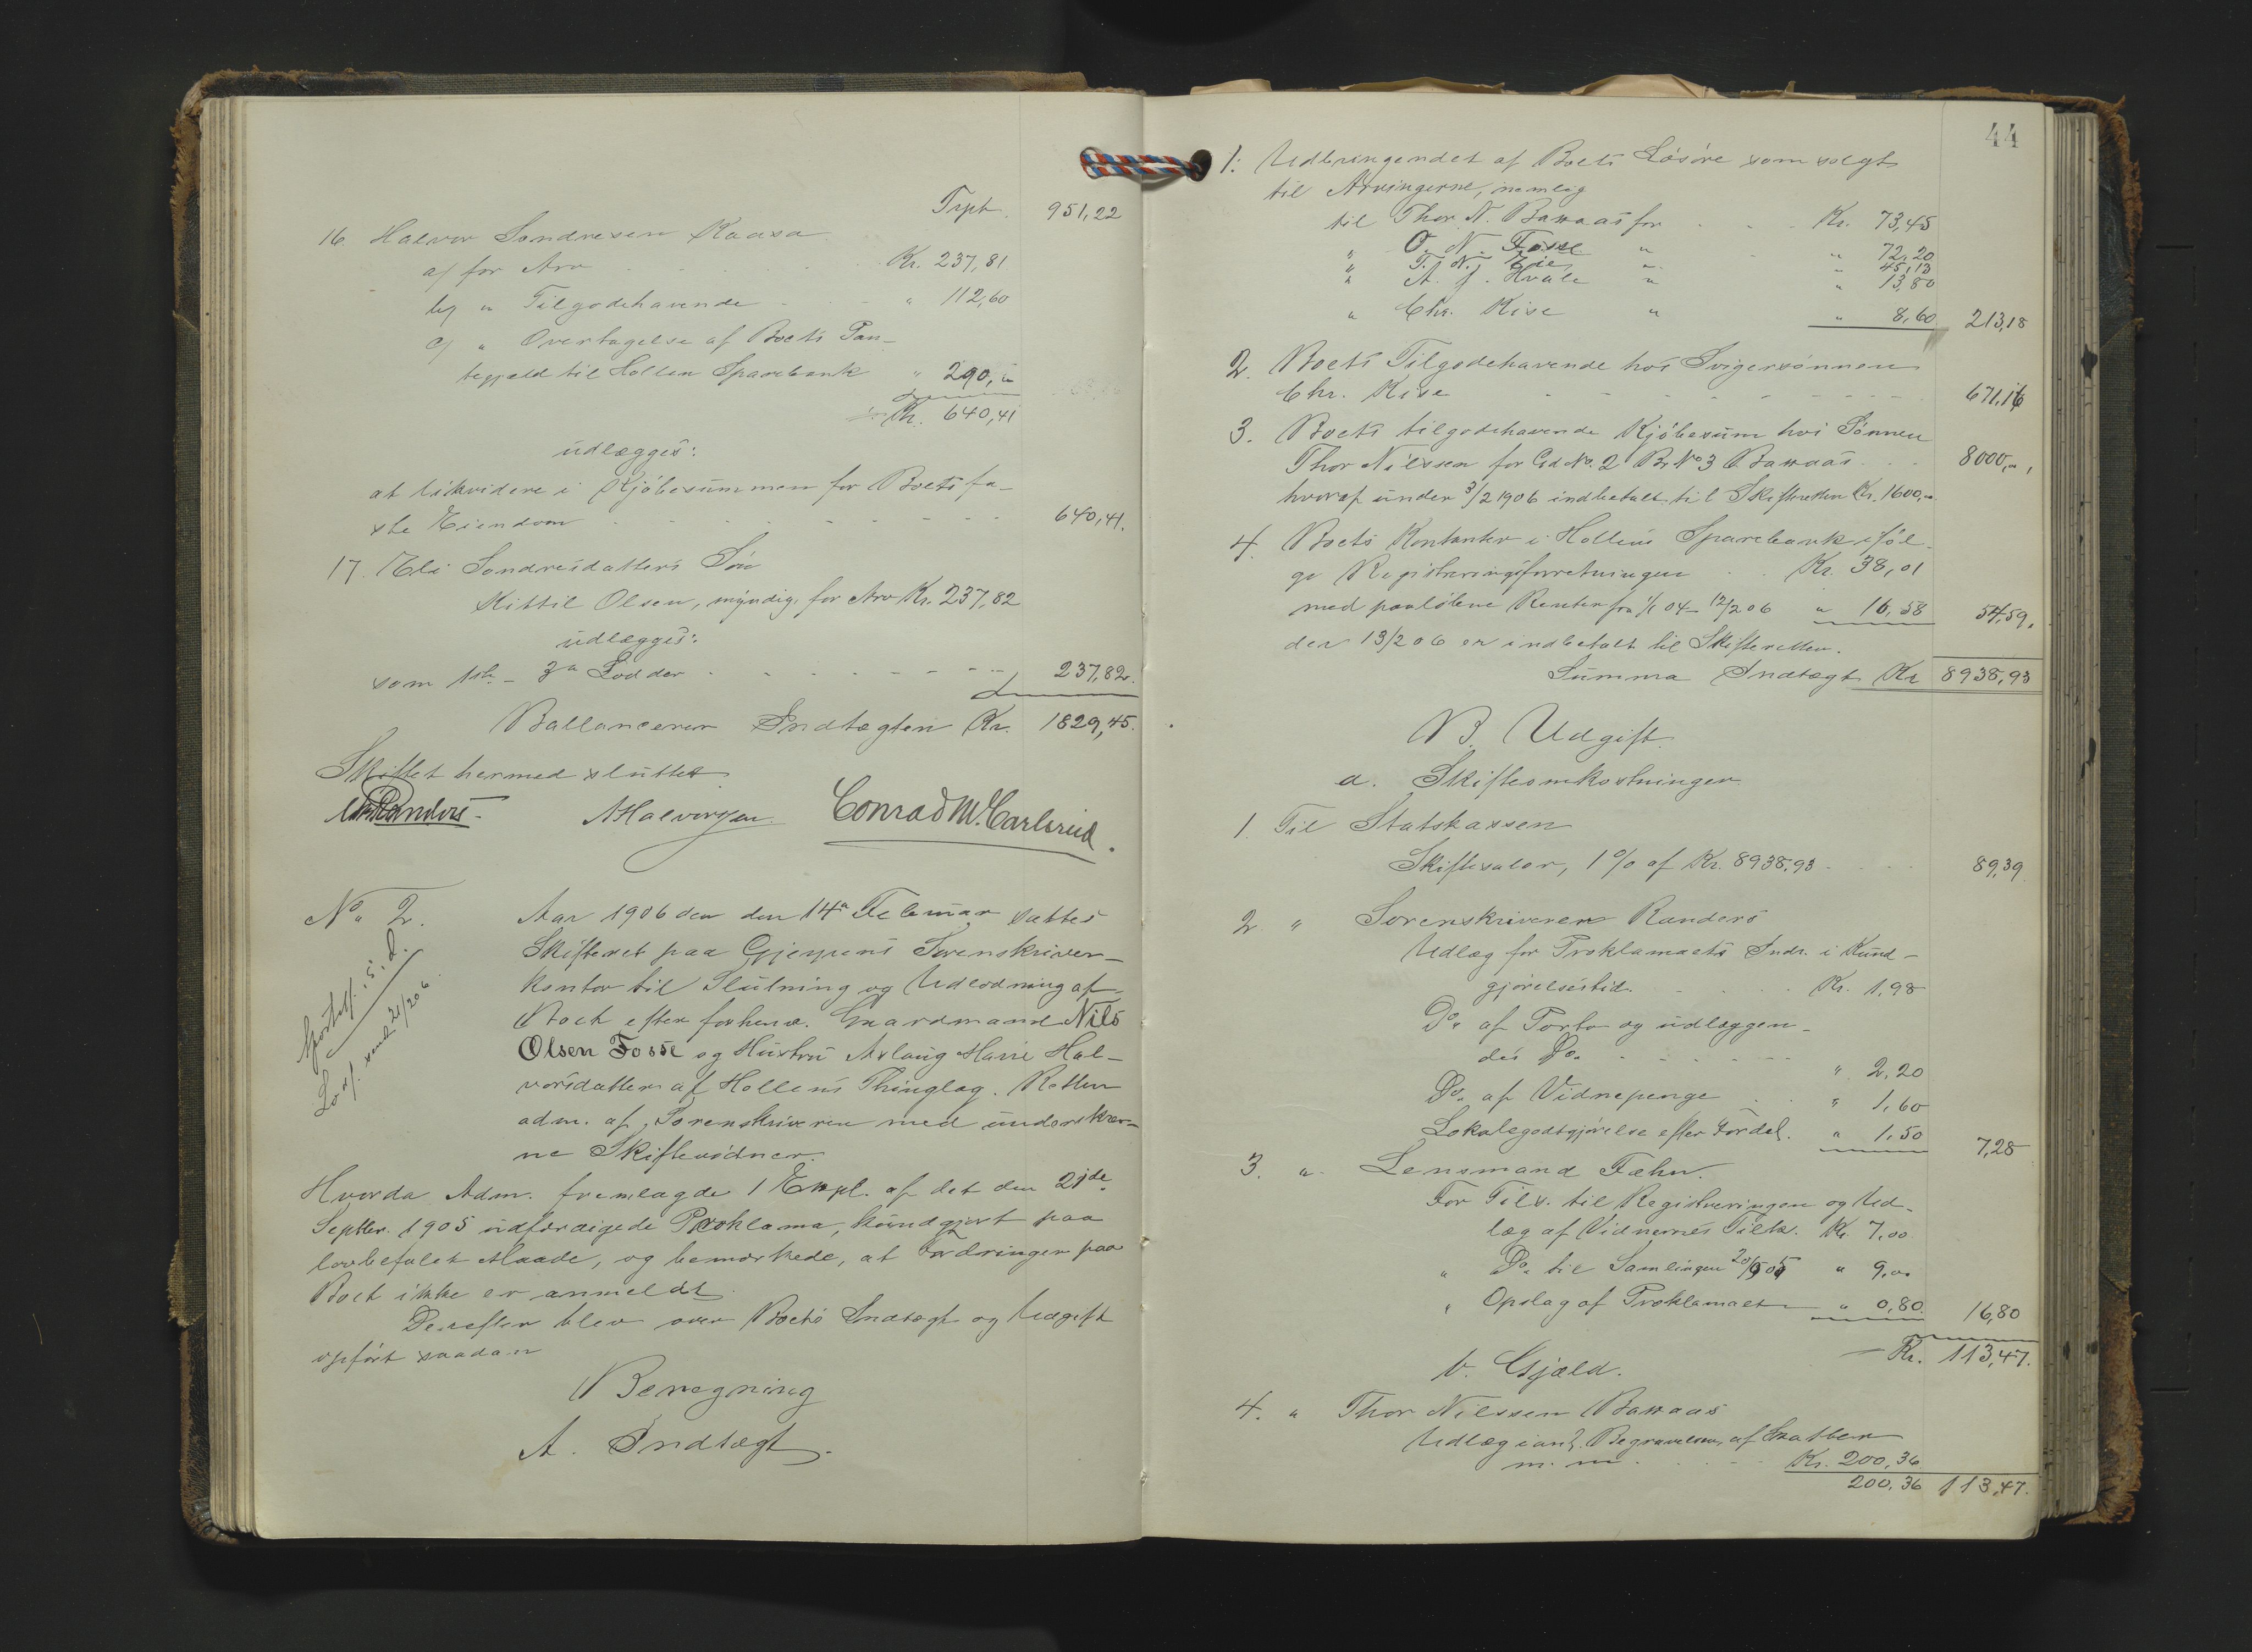 Trpt. 951,22
16. Halvor Sondresen Kaasa
a/ for Arv Kr. 237,81
b/ " Tilgodehavende " 112,60
c/ " Overtagelse af Boets Pan-
tegjæld til Hollen Sparebank " 290,"
Kr. 640,41
udlægges:
at likvidere i Kjöbesummen for Boets fa-
ste Eiendom 640,41.
17. Eli Sondresdatters Sön
Kittil Olsen, myndig, for Arv Kr. 237,82
udlægges:
som 1ste - 3a Lodder 237,82.
Ballancerer Indtægten Kr. 1829,45.
Skiftet hermed sluttet
Randers. AHalvorsen. Conrad M. Carlsrud.
No. 2. Aar 1906 den den 14de Februar sattes
Skifteret paa Gjerpens Sorenskriver-
kontor til Slutning og Udlodning af
Boet efter forhenv. Gaardmand Nils
Olsen Fosse og Hustru Aslaug Marie Hal-
vorsdatter af Hollens Thinglag. Retten
adm. af Sorenskriveren med underskrev-
ne Skiftevidner.
Hvorda Adm. fremlagde 1 Expl. af det den 21de
Septbr. 1905 udfærdigede Proklama, kundgjort paa
lovbefalet Maade, og bemærkede, at Fordringer paa
Boet ikke er anmeldt.
Derefter blev over Boets Indtægt og Udgift
opfört saadan
Beregning
A. Indtægt.
44
1. Udbringendet af Boets Lösöre som solgt
til Arvingerne, nemlig
til Thor N. Baasaas for Kr. 73,45
" O. N. Fosse " " 72,20
" T. N. Eie " " 45,13
" A. J. Hvale " " 13,80
" Chr. Kise " " 8,60 213,18
2. Boets Tilgodehavende hos Svigersönnen
Chr. Kise 671,16
3. Boets tilgodehavende Kjöbesum hos Sönnen
Thor Nilssen for Gd No. 2 Br No 3 Baasaas 8000,",
hvoraf under 3/2 1906 indbetalt til Skifteretten Kr. 1600,"
4. Boets Kontanter i Hollens Sparebank iföl-
ge Registreringsforretningen Kr. 38,01
med paalöbne Renter fra 1/1 04 - 12/2 06 " 16,58 54,59.
den 13/2 06 er indbetalt til Skifteretten.
Summa Indtægt Kr 8938,93
B. Udgift.
a. Skifteomkostninger
1. Til Statskassen
Skiftesalær, 1 % af Kr. 8938,93 89,39
2. " Sorenskriveren Randers
Udlæg for Proklamaets Indr. i Kund-
gjörelsestid. Kr. 1,98
Do. af Porto og udlæggen-
des Do. " 2,20
Do. af Vidnepenge " 1,60
Lokalegodtgjörelse efter Fordel. " 1,50 7,28
3. " Lensmand Fæhn.
For Tilv. til Registreringen og Ud-
læg af Vidnernes Tilk. Kr. 7,00
" Do. til Samlingen 20/9 05 " 9,00
" Opslag af Proklamaet " 0,80 16,80
Kr. 113,47.
b. Gjæld.
4. " Thor Nilssen Baasaas
Udlæg i anl. Begravelsen, af Skatter
m. m. Kr. 200,36
200,36 113,47.